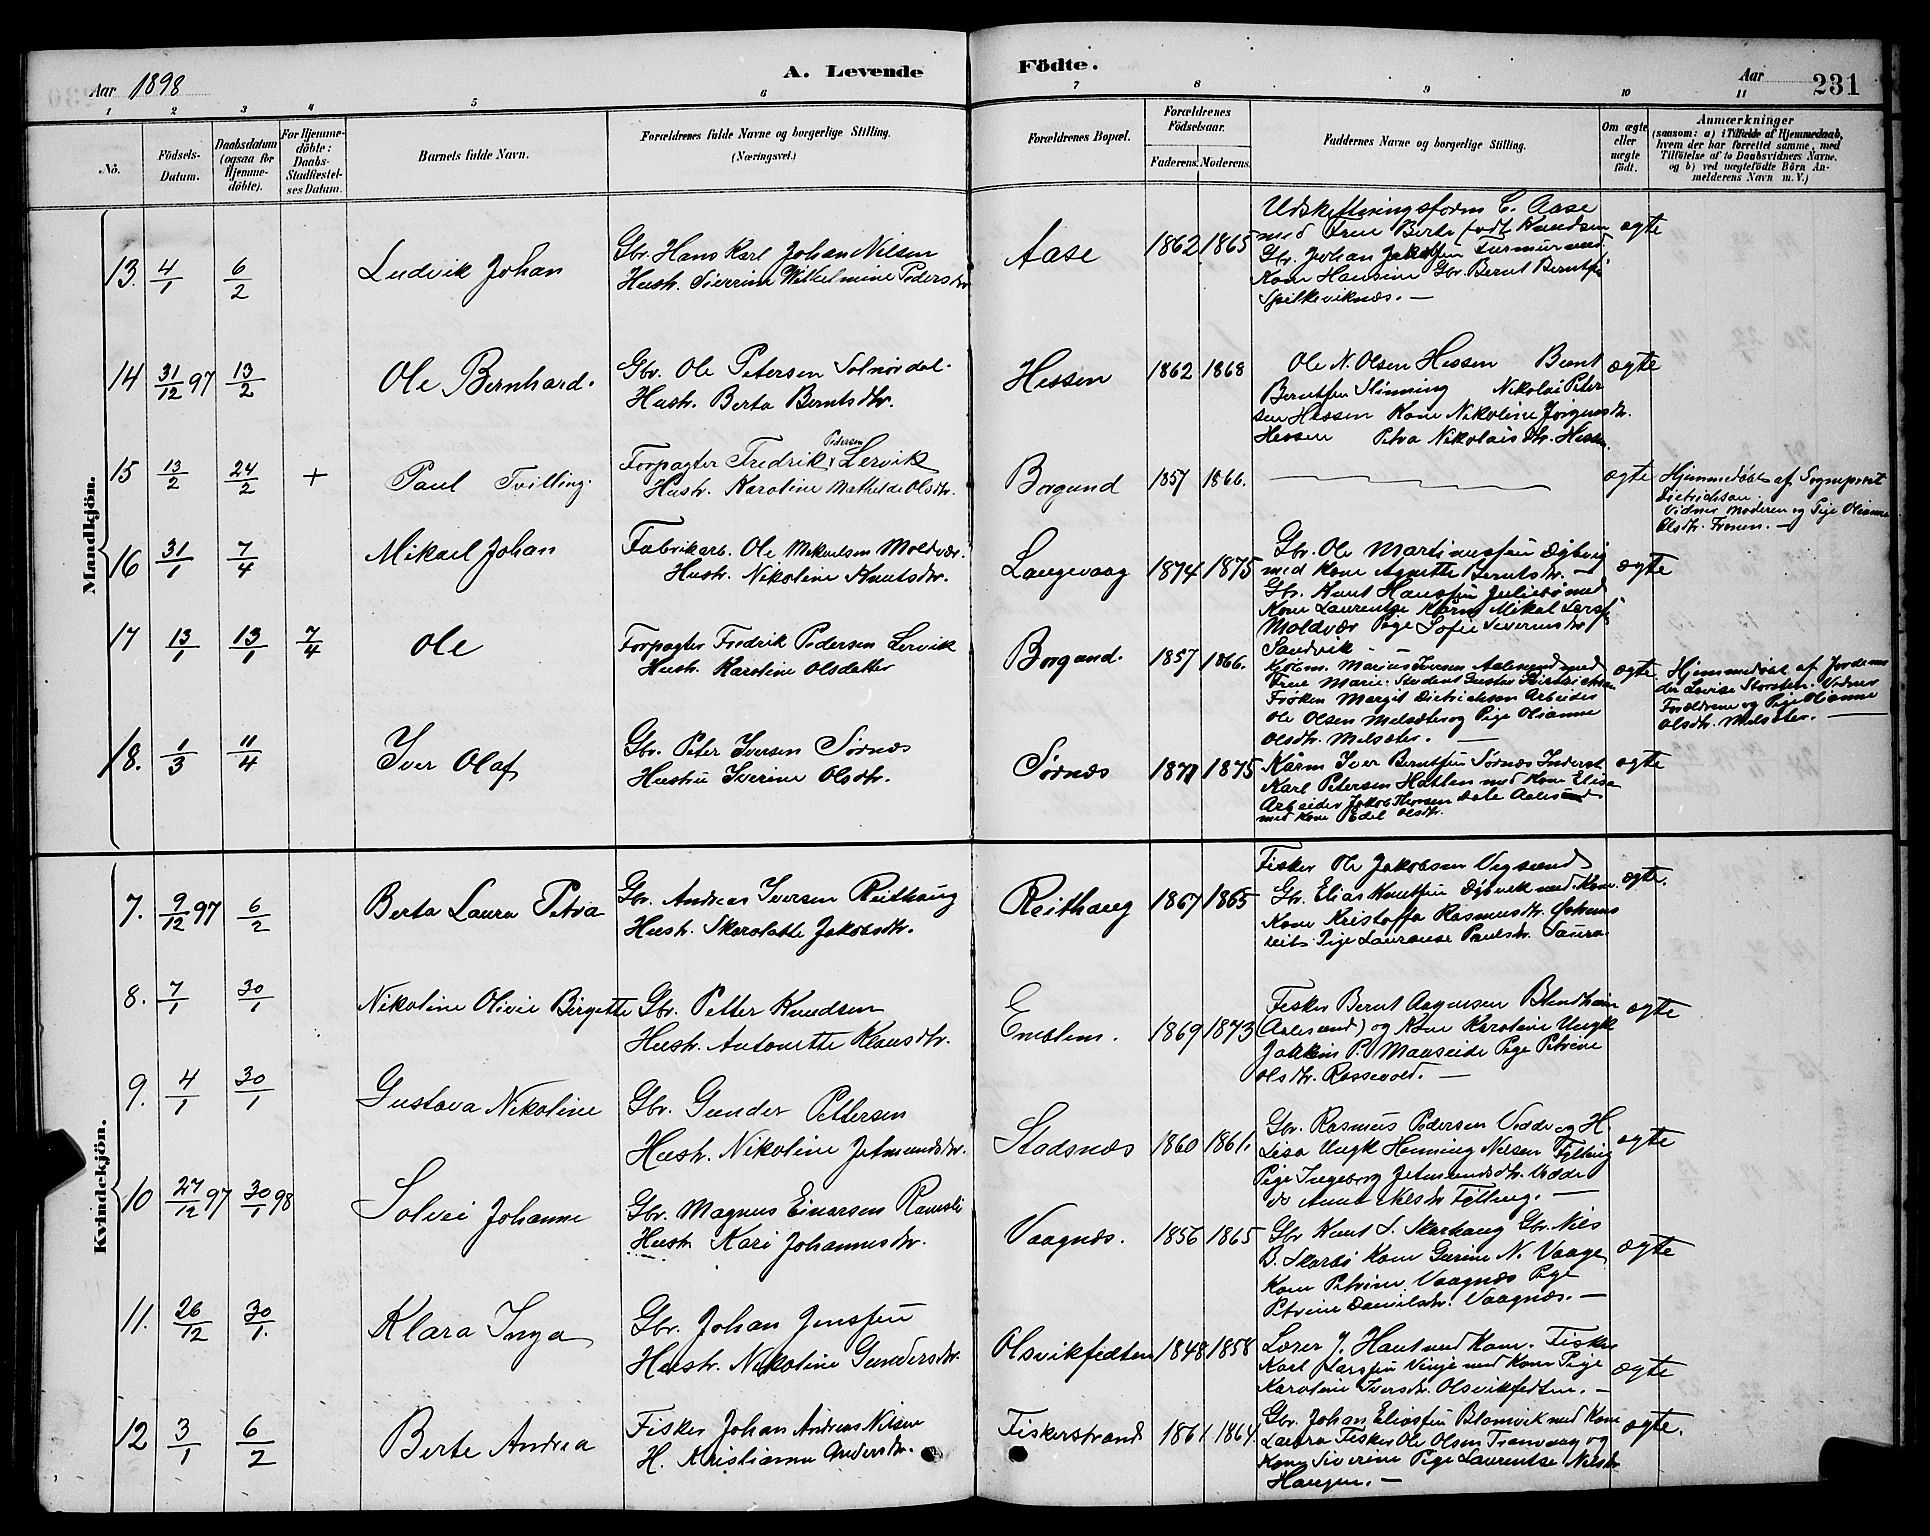 Aar 1898
A. Levende
Födte.
Aar
231
1 2 3 4 5 6 7 8 9 10 11
No.
Födsels-Datum.
Daabsdatum (ogsaa for Hjemme-döbte).
For Hjemme-döbte: Daabs-Stadfæstel-ses Datum.
Barnets fulde Navn.
Forældrenes fulde Navne og borgerlige Stilling.
(Næringsvei.)
Forældrenes Bopæl.
Forældrenes Födselsaar.
Faderens. Moderens.
Faddernes Navne og borgerlige Stilling.
Om ægte eller uægte födt.
Anmærkninger
(saasom: a) i Tilfælde af Hjemmedaab, hvem der har forrettet samme, med Tilföielse af to Daabsvidners Navne, og b) ved uegtefödte Börn An-melderens Navn m. V.)
Mandkjön.
13. 4/1 6/2 Ludvik Johan
Gbr. Hans Karl Johan Nilsen
Hustr. Sverrine Wilhelmine Pedersdtr
Aase 1862 1865
Udskiftningsform C. Aase
med Frue Berta født Knudsen
Gbr. Johan Jakobsen
Kone Hansine Gbr. Bernt Berntsen
Spilkeviknæs. —
ægte
14 31/12 97 13/2 Ole Bernhard.
Gbr. Ole Petersen Solnørdal.
Hustr. Berta Berntsdtr.
Hessen 1862 1868
Ole N. Olsen Hessen Bernt
Berntsen Slinning Nikolai Peter
sen Hessen Kone Nikoline Jørgensdtr.
Hessen Petra Nikolaisdtr. Hessen
ægte
15 13/2 24/2 + Paul Tvilling.
Forpagter Fredrik Pedersen Lervik
Hustr. Karoline Mathilde Olsdtr.
Borgund 1857 1866.
ægte
Hjemmedøbt af Sognepræst
Dietrichson.
Vidner Moderen og Pige Olianne
Olsdtr. —
16 31/1 7/4 Mikael Johan
Fabrikarb. Ole Mikaelsen Moldvær.
Hustr. Nikoline Knutsdtr.
Langevaag 1874 1875
Gbr. Ole Martinussen Djbvig
med Kone Agnette Berntsdtr. —
Gbr. Knut Hanssen Juliebø med
Kone Laurentse Kårm. Mikal Larss.
Moldvær Pige Sofie Severinsdtr
Sandvik — —
ægte
17 13/1 13/1 7/4 Ole
Forpagter Fredrik Pedersen Lervik
Hustr. Karoline Olsdatter
Borgund. 1857 1866.
Kjøbm. Marius Iversen Aalesund med
Frue Marie. Student Gustav Dietrichson
Frøken Margit Dietrichson Arbeider
Ole Olsen Melsæter og Pige Olianne
Olsdtr. Melsæter. —
ægte
Hjemmedøbt af Jordemo
der Lovise Storsten. Vidner
Forældrene og Pige Olianne
Olsdtr. Melsæter. —
18. 1/3 11/4 Iver Olaf
Gbr. Peter Iversen Sørnæs
Hustru Iverine Olsdtr.
Sørnæs 1871 1875
Kårm Iver Berntsen Sørnæs Inderst
Karl Petersen Hatlen med Kone Elisa
Arbeider Jakob Thorsen Aalesund
med Kone Olsdtr.
ægte
Kvindekjön.
7. 9/12 97 6/2 Berta Laura Petra
Gbr. Andreas Iversen Reithaug
Hustr. Skarolatte Jakobsdtr.
Reithaug 1867 1865
Fisker Ole Jakobsen Vegsund
Gbr. Elias Knutsen Djbvik med Kone.
Kone Kristoffa Rasmusdtr.
Pige Lauranse Paulsdtr.
ægte.
8. 7/1 30/1 Nikoline Olivie Birgitte
Gbr. Petter Knudsen
Hustr. Antonette Klausdtr.
Emblem. 1869 1873
Fisker Bernt Aagesen Blindheim
(Aalesund) og Kone Karoline Ungk
Joakim P. Mauseide Pige Petrine
Olsdtr. Rossevold. —
ægte
9. 4/1 30/1 Gustava Nikoline
Gbr. Gunder Pettersen
Hustr. Nikoline Jetmundsdtr.
Stadsnæs 1860 1861.
Gbr. Rasmus Pedersen Vedde og H.
Lisa Ungk Henning Nilsen Fylling
Pige Ingeborg Jetmundsdtr. Vedde
do Anne Nilsdtr Fylling. —
ægte
10 27/12 97 30/1 98 Solvei Johanne
Gbr. Magnus Einarsen Ramsli
Hustr Kari Johannesdtr.
Vaagnæs. 1856 1865
Gbr Knut S. Skarhaug Gbr. Nils
B. Skarbö Kone Gurine N. Vaage
Kone Petrine Vaagnæs Pige
Petrine Danielsdtr. Vaagnæs. —
ægte
11. 26/12 30/1. Klara Inga
Gbr. Johan Jenssen
Hustr. Nikoline Gundersdtr.
Olsvikfedten 1848 1858
Lærer J. Hant med Kone. Fisker
Karl Larssen Vinje med Kone Pige
Karoline Iversdtr. Olsvikfedten. —
ægte
12 3/1 6/2 Berte Andrea
Fisker Johan Andreas Nilsen
H. Kristianne Andersdtr.
Fiskerstrand 1861 1864.
Gbr. Johan Eliassen Blomvik med Kone
Laura Fisker Ole Olsen Tranvaag og
Kone Siverine Pige Laurentse Nilsdtr
Haugen. —
ægte.